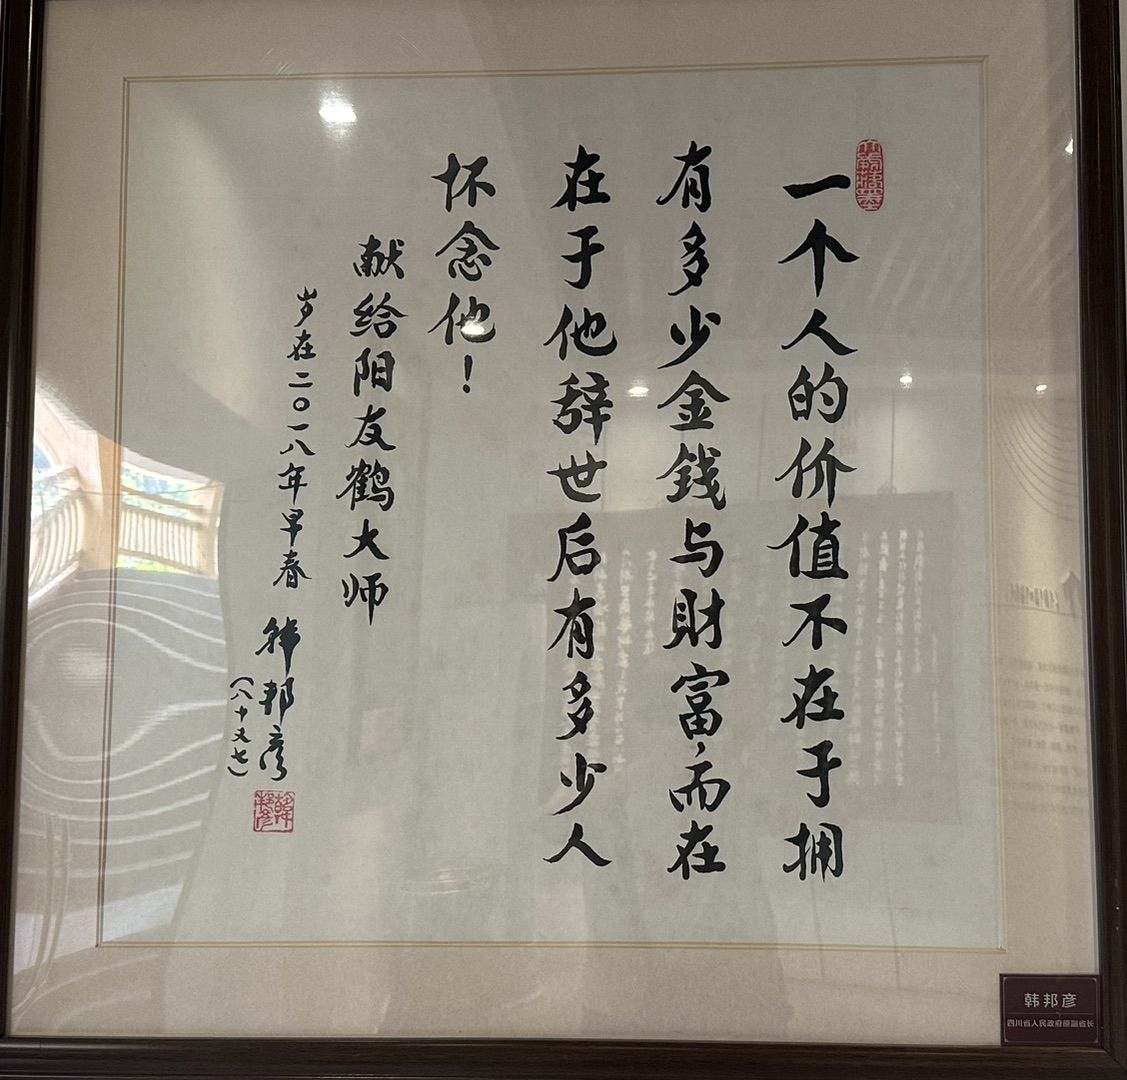 一个人的价值不在于拥
有多少金钱与财富,而在
在于他辞世后有多少人
怀念他！
献给阳友鹤大师
岁在二〇一八年早春
韩邦彦
(八十又七)
韩邦彦
四川省人民政府原副省长